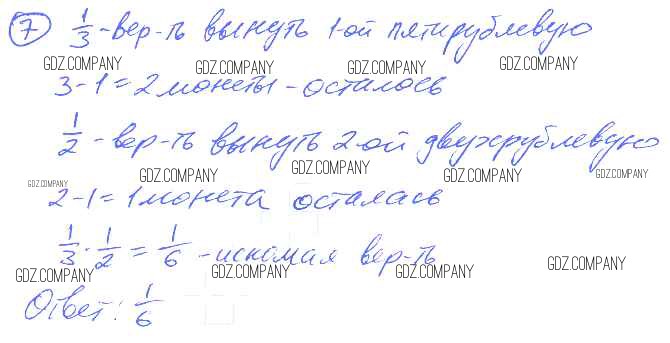 7 1/3 - вер-ть вынуть 1-ой пятирублевую
GDZ.COMPANY GDZ.COMPANY GDZ.COMPANY GDZ.COMPANY
3-1=2 монеты - осталось
1/2 - вер-ть вынуть 2-ой двухрублевую
GDZ.COMPANY GDZ.COMPANY GDZ.COMPANY GDZ.COMPANY GDZ.COMPANY
2-1=1 монета осталась
1/3 · 1/2 = 1/6 - искомая вер-ть
GDZ.COMPANY GDZ.COMPANY GDZ.COMPANY GDZ.COMPANY
Ответ: 1/6